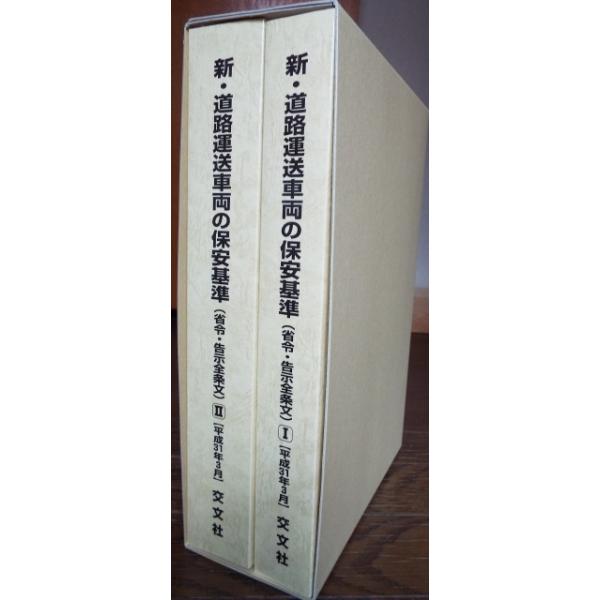 新・道路運送車両の保安基準(省令・告示全条文)Ⅰ[平成31年3月] 交文社
新・道路運送車両の保安基準(省令・告示全条文)Ⅱ[平成31年3月] 交文社